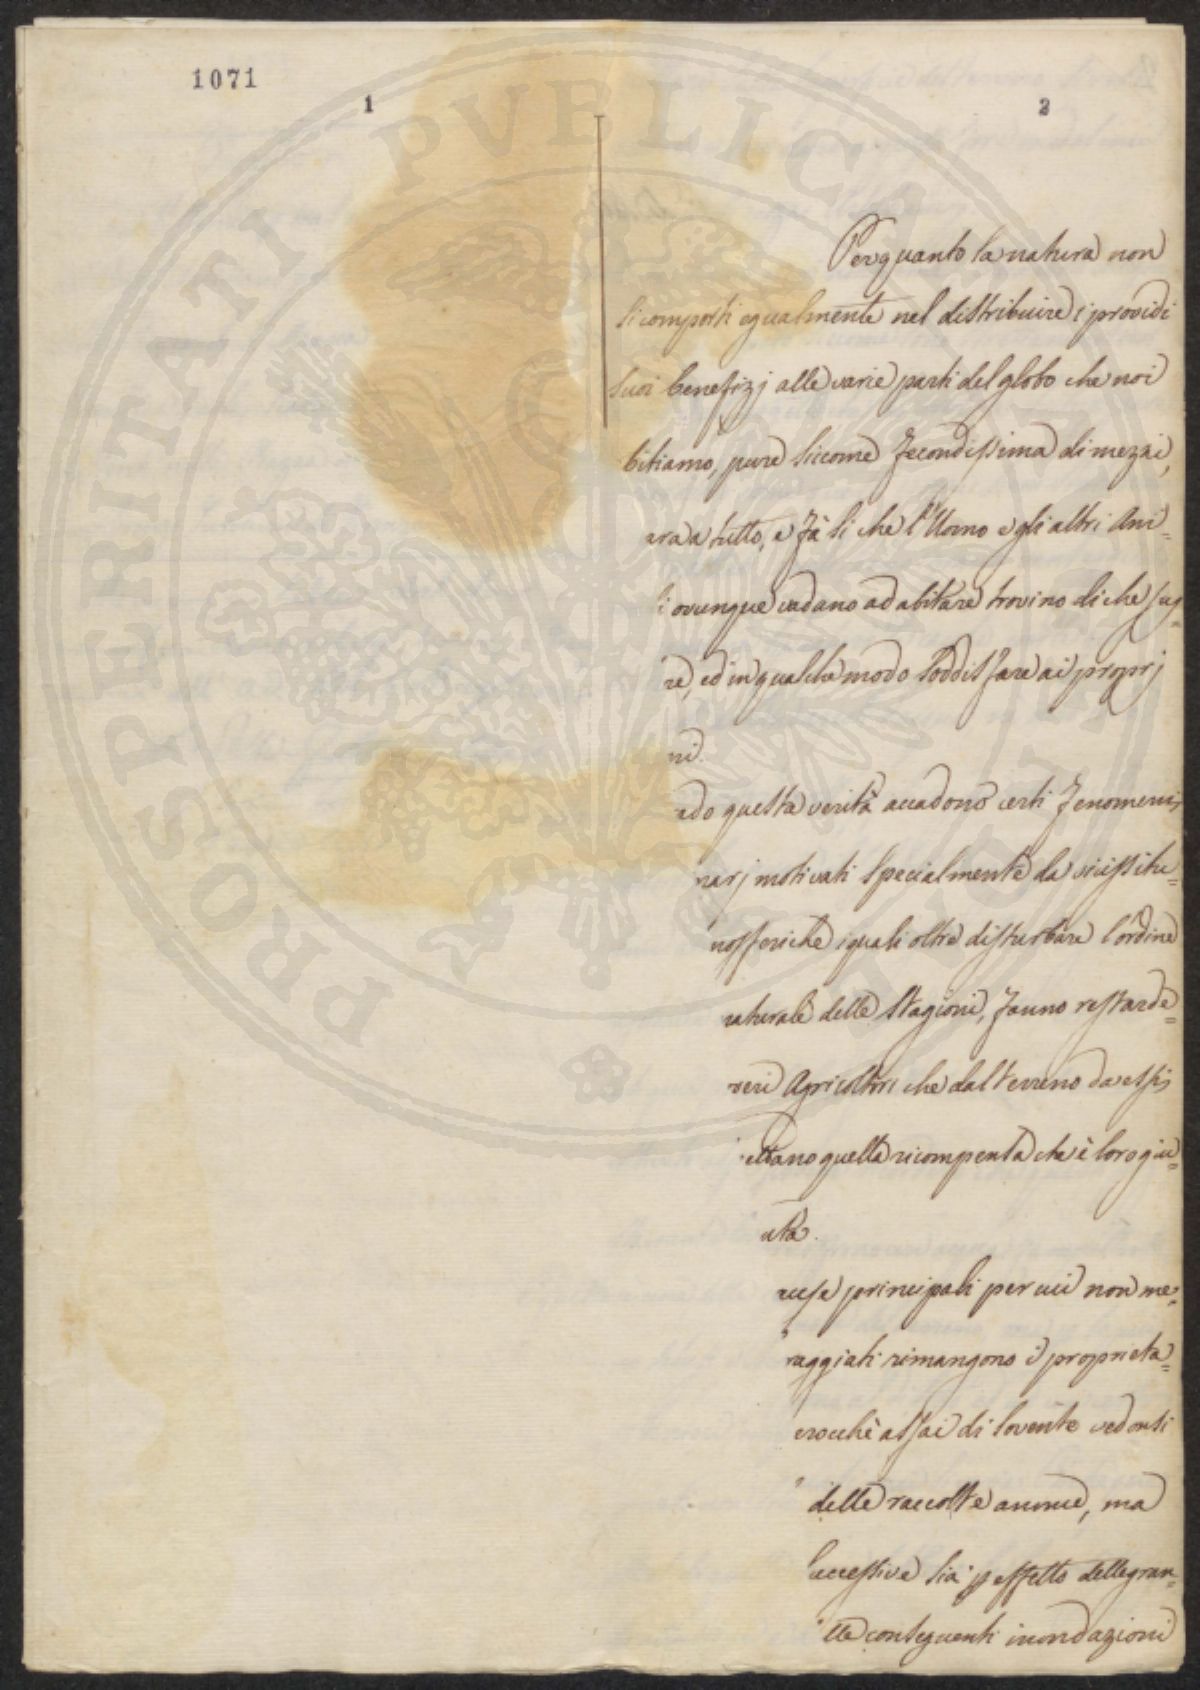 1071
1
2
PROSPERITATI PVBLICAE AVGENDAE
Per quanto la natura non
si comporti egualmente nel distribuire i provvidi
suoi benefizj alle varie parti del globo che noi
bitiamo, pure siccome fecondissima di mezzi,
ara a tutto, e fà si che l'Uomo e gli altri Ani=
i ovunque vadano ad abitare trovino di che sag=
re, ed in qualche modo soddisfare ai proprj
ni.
ado questa verità accadono certi fenomeni
narj motivati specialmente da vicissitu=
mosferiche i quali oltre disturbare l'ordine
naturale delle Stagioni, fanno ressarde=
veri Agricoltori che dal terreno da essi
ettano quella ricompensa che è loro giu=
sta.
cause principali per cui non me=
raggiati rimangono i proprieta=
erocchè assai di sovente vedonsi
delle raccolte annue, ma
successive sia p effetto delle gran=
lle conseguenti inondazioni